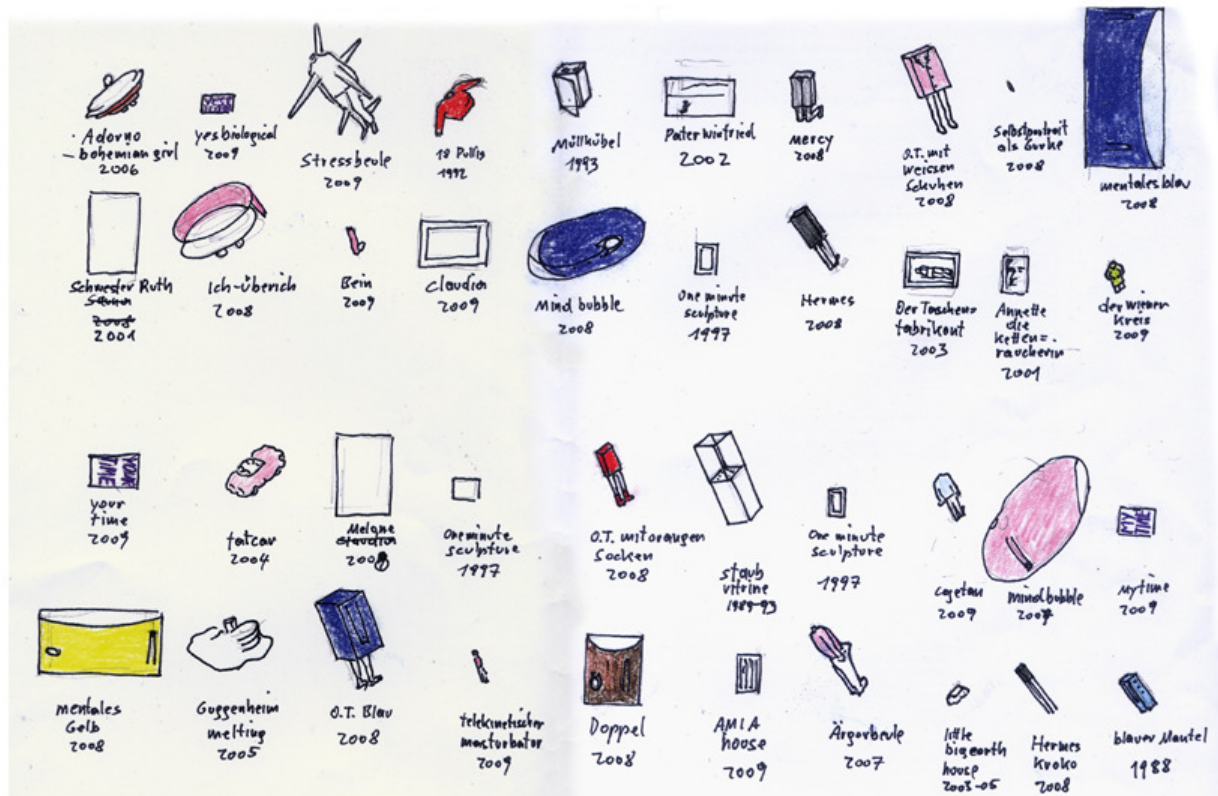 Adorno
- bohemian girl
2006
yes biological
2009
Stressbeule
2009
18 Pullis
1992
Müllkübel
1993
Pater Winfried
2002
Mercy
2008
O.T. mit
weissen
Schuhen
2008
Selbstportrait
als Gurke
2008
mentales blau
2008
Schwester Ruth
2008
2001
Ich-Überich
2008
Bein
2009
Claudia
2009
Mind bubble
2008
One minute
sculpture
1997
Hermes
2008
Der Taschen=
fabrikant
2003
Annette
die
ketten=
raucherin
2001
der wiener
Kreis
2009
YOUR
TIME
your
time
2009
fatcar
2004
Melanie
Claudia
2008
One minute
sculpture
1997
O.T. mit orangen
Socken
2008
staub
vitrine
1989-93
One minute
sculpture
1997
Cajetan
2009
mind bubble
2007
MY
TIME
My time
2009
mentales
Gelb
2008
Guggenheim
melting
2005
O.T. Blau
2008
telekinetischer
masturbator
2009
Doppel
2008
AMIA
house
2009
Ärgerbeule
2007
little
big earth
house
2003-05
Hermes
Kroko
2008
blauer Mantel
1988